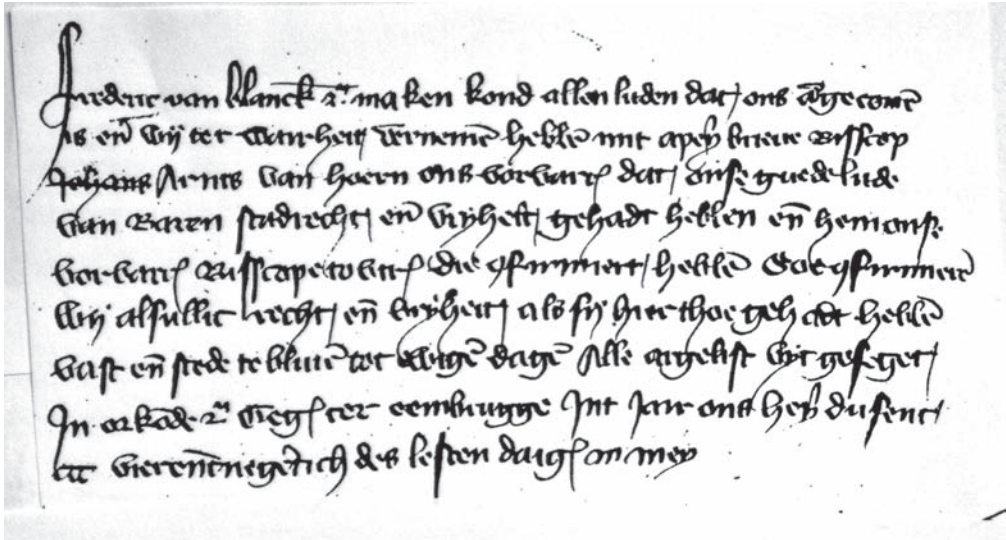 Frederic van Blanck̅ etc maken kond allen luden dat ons a̅ngecome̅
is en̅ wij ter waerheit v̅erneme̅ hebbe̅ mit apen̅ brieve Bisscop
Johans Arnts van Hoern ons vorvairs dat onse guede lude
van Baren stadrecht en̅ vryheit gehadt hebben en̅ hem onse
vorvairs Bisscope tot Utr die 9firmiert hebbe̅ Soe 9firmiere̅
Wij alsullic recht en̅ vryheit als sij hier thoe gehadt hebbe̅
vast en̅ stede te blive̅ tot ewige̅ dage̅ Alle argelist uyt geseget
In orko̅de etc Gegev ter eembrugge Int jair ons he̅r̅ dusent
ccc vieren̅ negentich des lesten daigs in mey